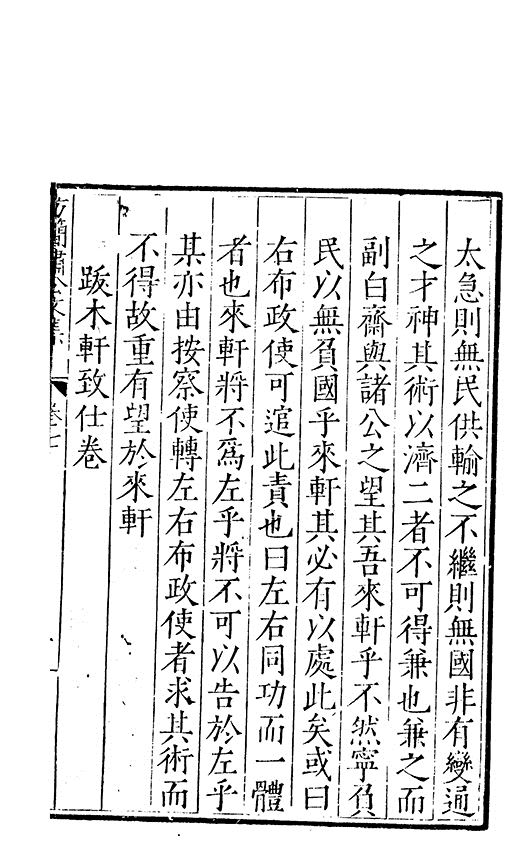 太急則無民供輸之不繼則無國非有變通
之才神其術以濟二者不可得兼也兼之而
副白齋與諸公之望其吾來軒乎不然寧負
民以無負國乎來軒其必有以處此矣或曰
右布政使可逭此責也曰左右同功而一體
者也來軒將不爲左乎將不可以告於左乎
某亦由按察使轉左右布政使者求其術而
不得故重有望於來軒
跋木軒致仕卷
方簡肅公文集
卷七